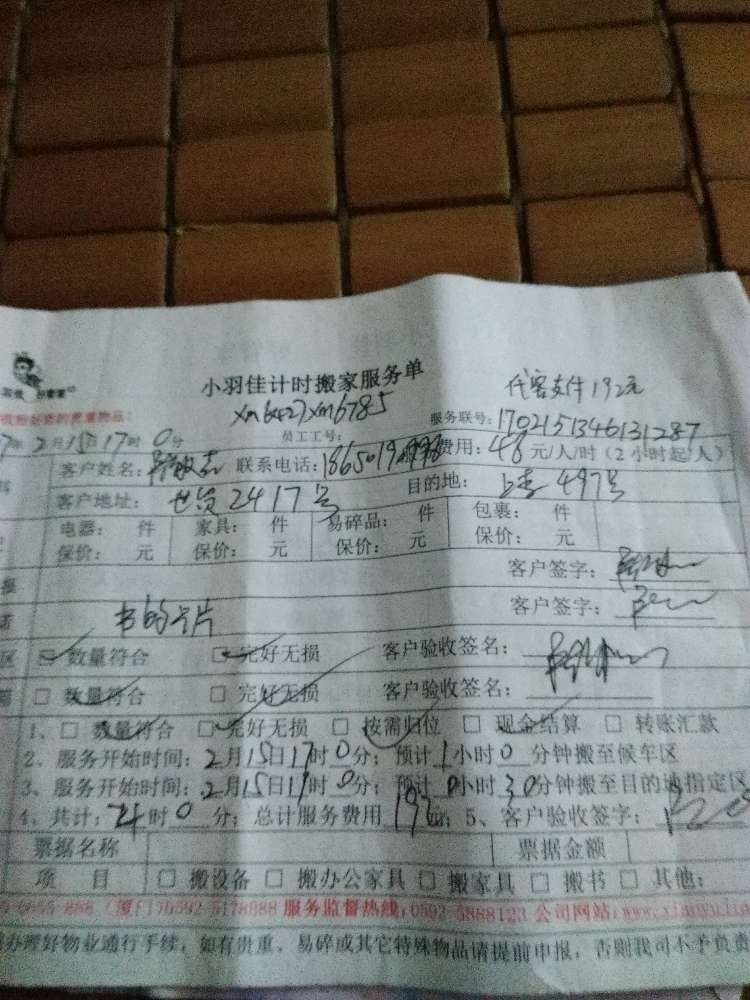 小羽佳计时搬家服务单
代客支付192元
xm6427 xm6785
员工工号:
服务联号:1702151346131287
7年2月15日17时0分
客户姓名: 联系电话: 费用:48元/人/时(2小时起/人)
客户地址: 世贸2417号 目的地: 497号
电器: 件 家具: 件 易碎品: 件 包裹: 件
保价: 元 保价: 元 保价: 元 保价: 元
客户签字:
书的 片 客户签字:
区 数量符合 完好无损 客户验收签名:
数量符合 完好无损 客户验收签名:
1、 数量符合 完好无损 按需归位 现金结算 转账汇款
2、服务开始时间:2月15日17时0分;预计1小时0分钟搬至候车区
3、服务开始时间:2月15日 时0分;预计0小时30分钟搬至目的地指定区
4、共计: 时0分;总计服务费用192元;5、客户验收签字:
票据名称 票据金额
项 目 搬设备 搬办公家具 搬家具 搬书 其他:
888(厦门)0592-5178888 服务监督热线:0592-5888123 公司网站:www.xiaoyujia
办理好物业通行手续,如有贵重、易碎或其它特殊物品请提前申报,否则我司不予负责